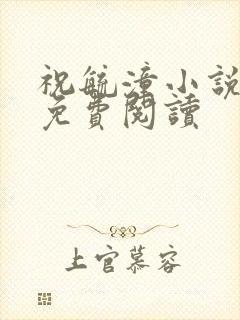 祝毓潼小說
免費閱讀
上官慕容